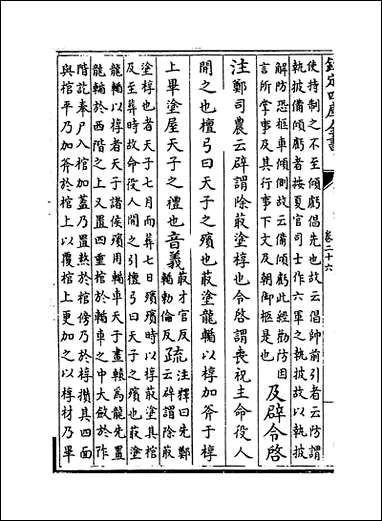 欽定四庫全書
卷二十六
使持制之不至傾虧倡先也故云倡帥前引者云防謂
執披備傾虧者按夏官司士作六軍之執披故以執披
解防恐柩車傾側故云備傾虧此經勸防因
言所掌事及其行事下文及朝御柩是也
及辟令啓
注鄭司農云辟謂除菆塗椁也令啓謂喪祝主命役人
開之也檀弓曰天子之殯也菆塗龍輴以椁加斧于椁
上畢塗屋天子之禮也音義
菆才官反
輴勅倫反
疏
注釋曰先鄭
云辟謂除菆
塗椁也者天子七月而葬七日殯殯時以椁菆塗其棺
及至葬時故命役人開之引檀弓曰天子之殯也菆塗
龍輴以椁者天子諸侯殯用輴車天子畫轅為龍先置
龍輴於西階之上又置四重棺於輴車之中大斂於阼
階訖奉尸入棺加蓋乃置熬於棺傍乃於椁攢其四面
與棺平乃加斧於棺上以覆棺上更加之以椁材乃畢